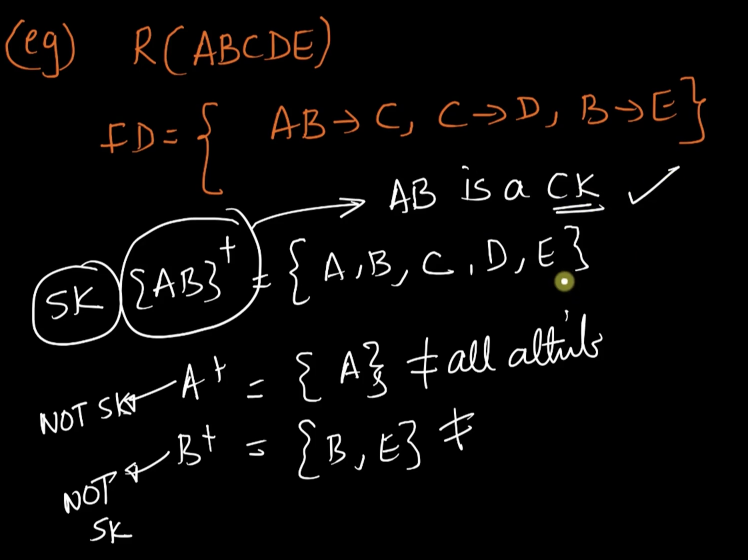 (eg) R(ABCDE)
FD = { AB → C, C → D, B → E}
AB is a CK ✓
SK {AB}⁺ = {A, B, C, D, E}
NOT SK ← A⁺ = {A} ≠ all attrib
NOT SK ← B⁺ = {B, E} ≠